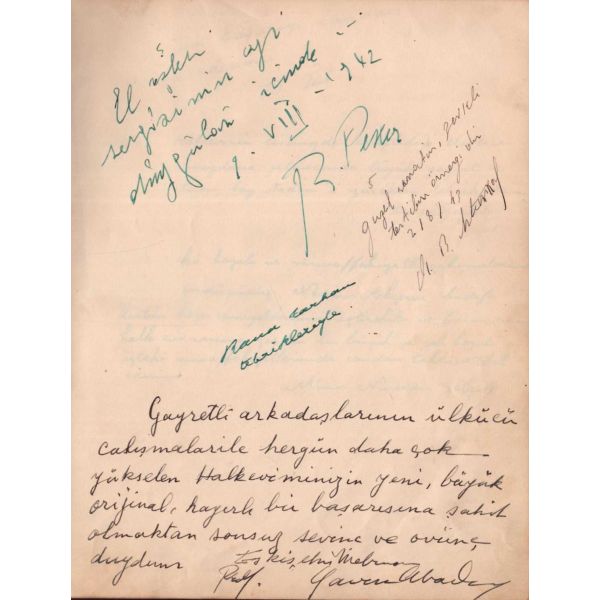 El işleri
sergisinin
duyguları içinde
9. VIII - 1942
R. Peker
güzel sanatın, zevkli
tertibin örneği
2/8/42
Dr. B.
Rana Tarhan
tebrikleriyle.
Gayretli arkadaşlarının ülkücü
çalışmalarile hergün daha çok
yükselen Halkevimizin yeni, büyük
orijinal, hayırlı bir başarısına şahit
olmaktan sonsuz sevinç ve övünç
duydum Eskişehir
Yavuz Abadan